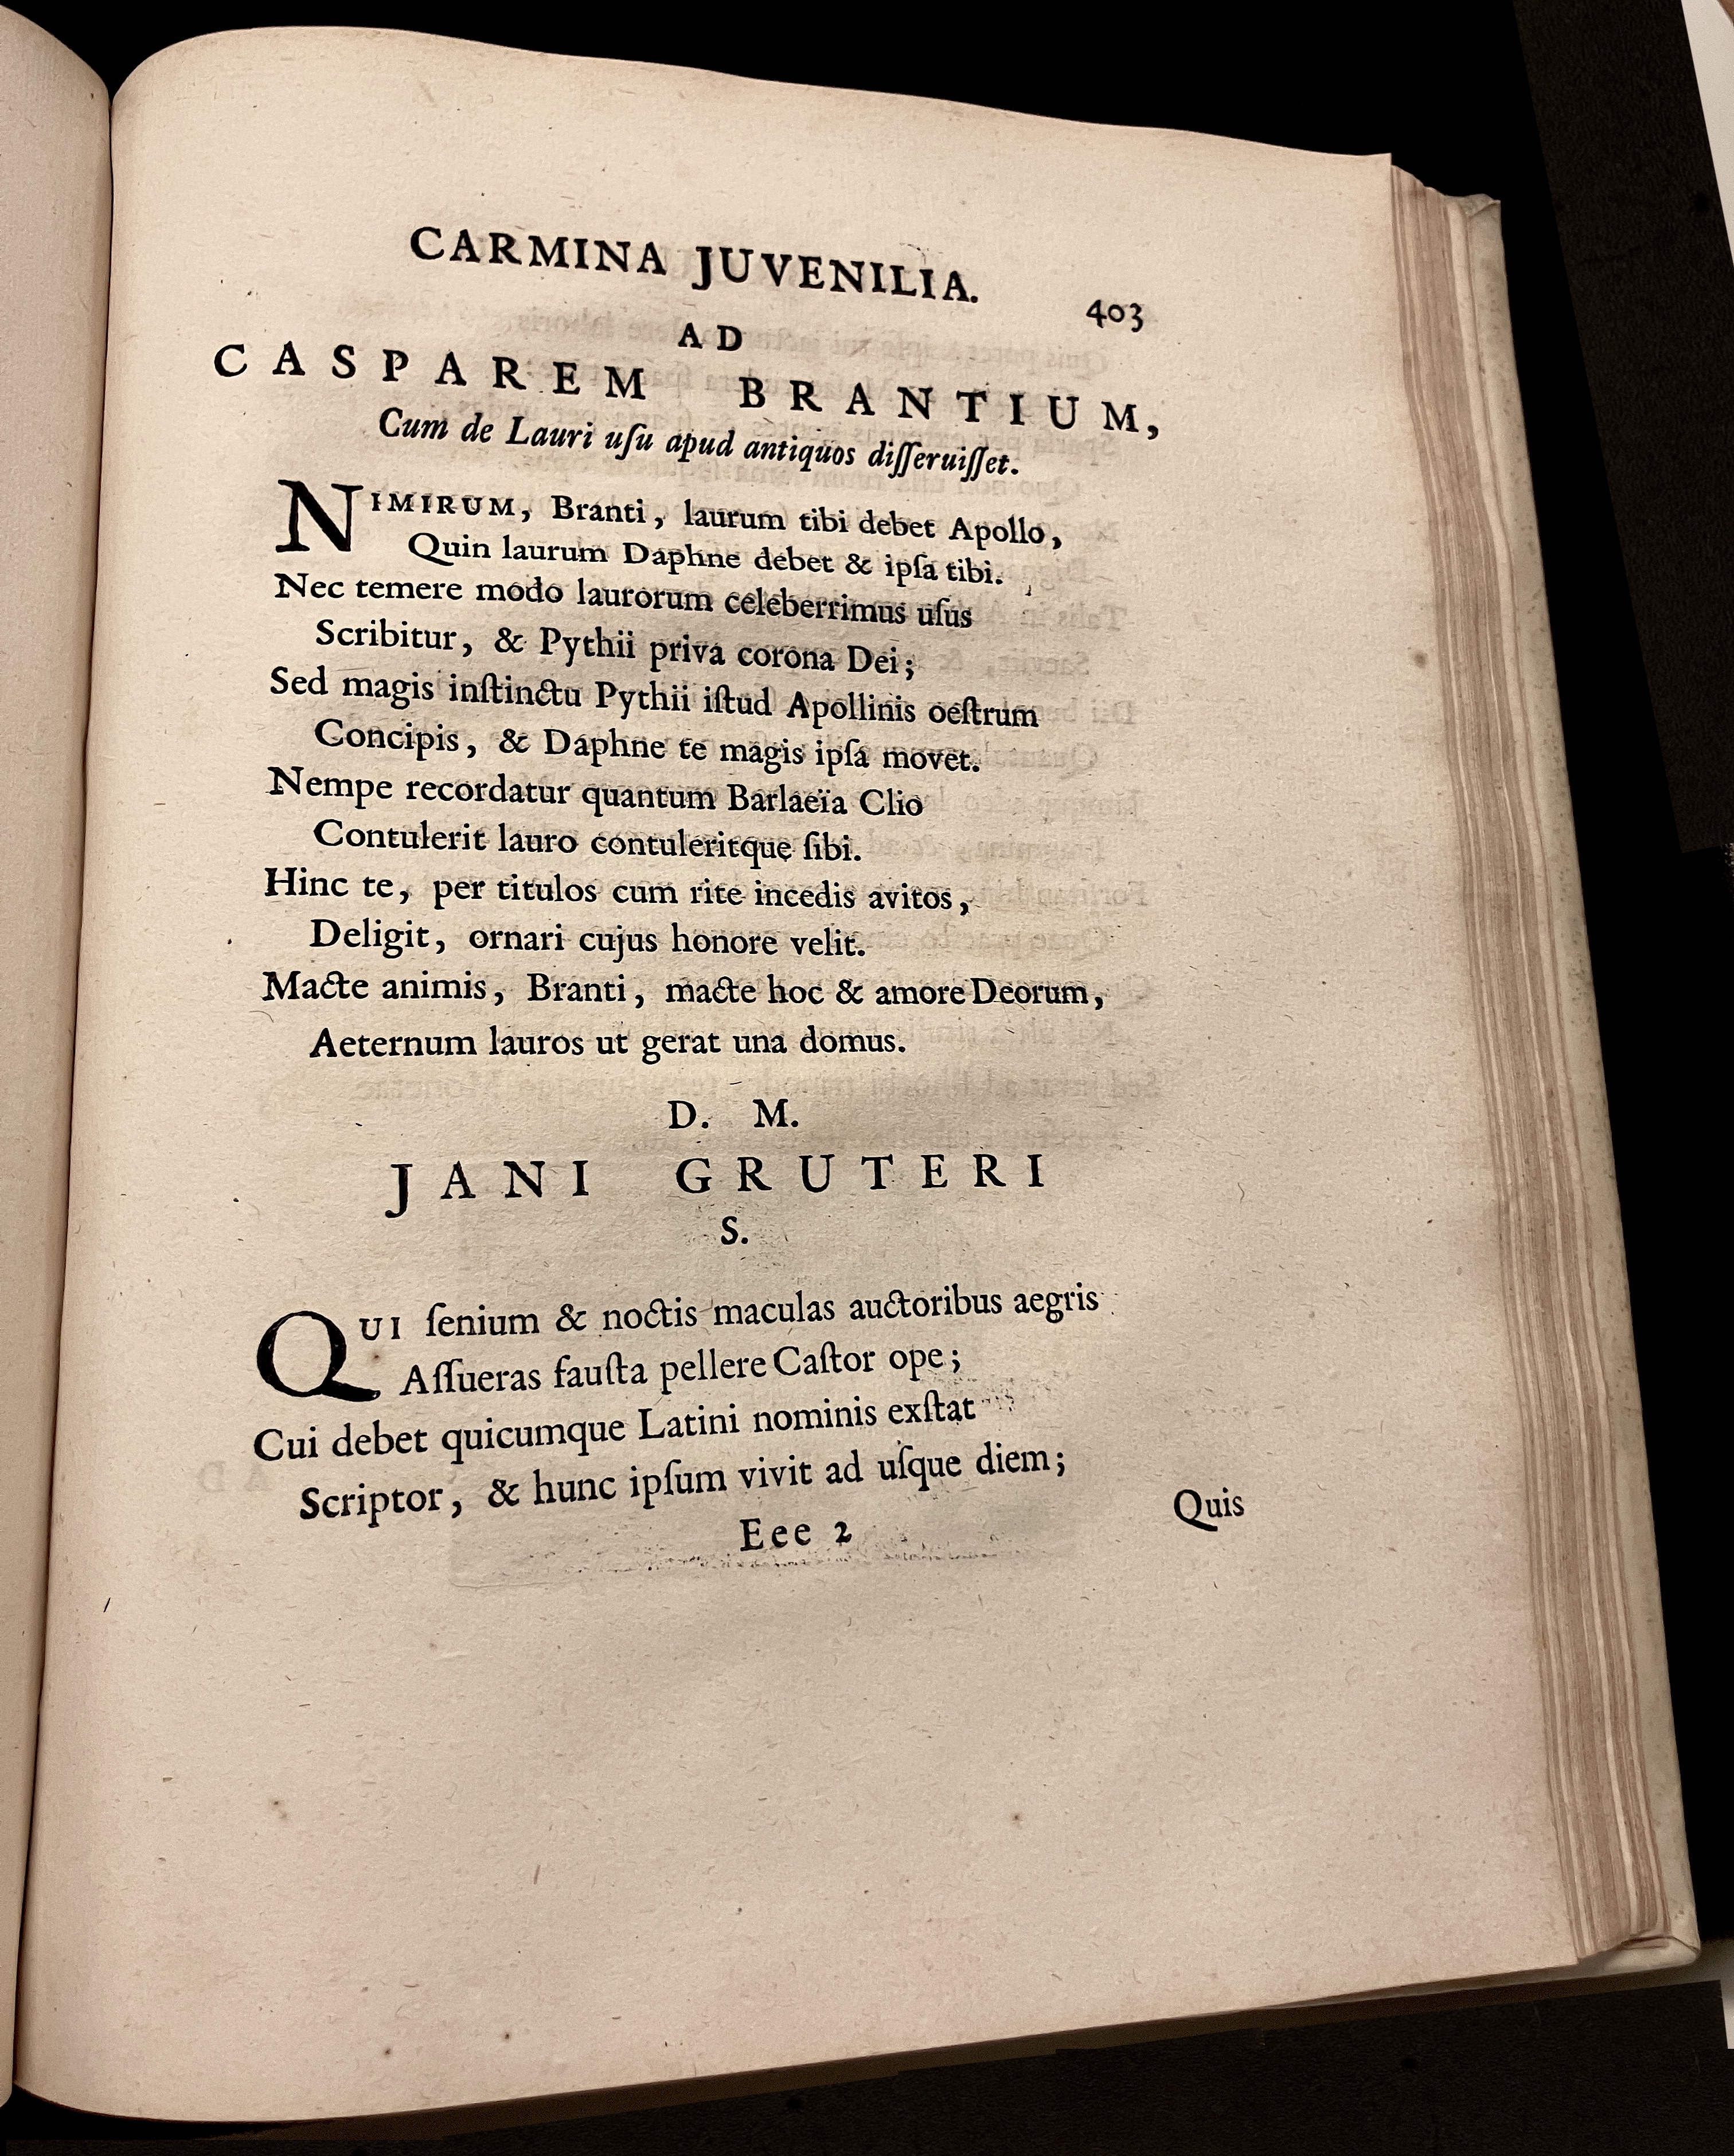 CARMINA JUVENILIA.
403
AD
CASPAREM BRANTIUM,
Cum de Lauri uſu apud antiquos diſſeruiſſet.
NIMIRUM, Branti, laurum tibi debet Apollo,
Quin laurum Daphne debet & ipſa tibi.
Nec temere modo laurorum celeberrimus uſus
Scribitur, & Pythii priva corona Dei;
Sed magis inſtinctu Pythii iſtud Apollinis oeſtrum
Concipis, & Daphne te magis ipſa movet.
Nempe recordatur quantum Barlaeïa Clio
Contulerit lauro contuleritque ſibi.
Hinc te, per titulos cum rite incedis avitos,
Deligit, ornari cujus honore velit.
Macte animis, Branti, macte hoc & amore Deorum,
Aeternum lauros ut gerat una domus.
D. M.
JANI GRUTERI
S.
QUI ſenium & noctis maculas auctoribus aegris
Aſſueras fauſta pellere Caſtor ope;
Cui debet quicumque Latini nominis exſtat
Scriptor, & hunc ipſum vivit ad uſque diem;
Eee 2
Quis